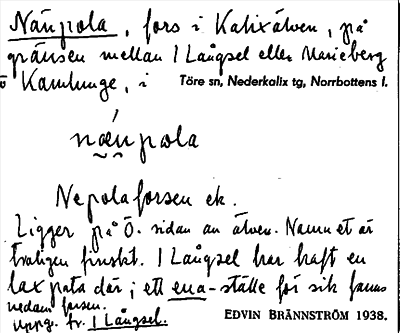 Nänpola, fors i Kalixälven, på
gränsen mellan 1 Långsel eller Marieberg
o Kamlunge, i Töre sn, Nederkalix tg, Norrbottens l.
næ´npola
Nepolaforsen ek.
Ligger på Ö. sidan av älven. Namnet är
troligen finskt. 1 Långsel har haft en
laxpata där; ett ena-ställe för sik fanns
nedom forsen.
Uppg. fr. 1 Långsel.
EDVIN BRÄNNSTRÖM 1938.